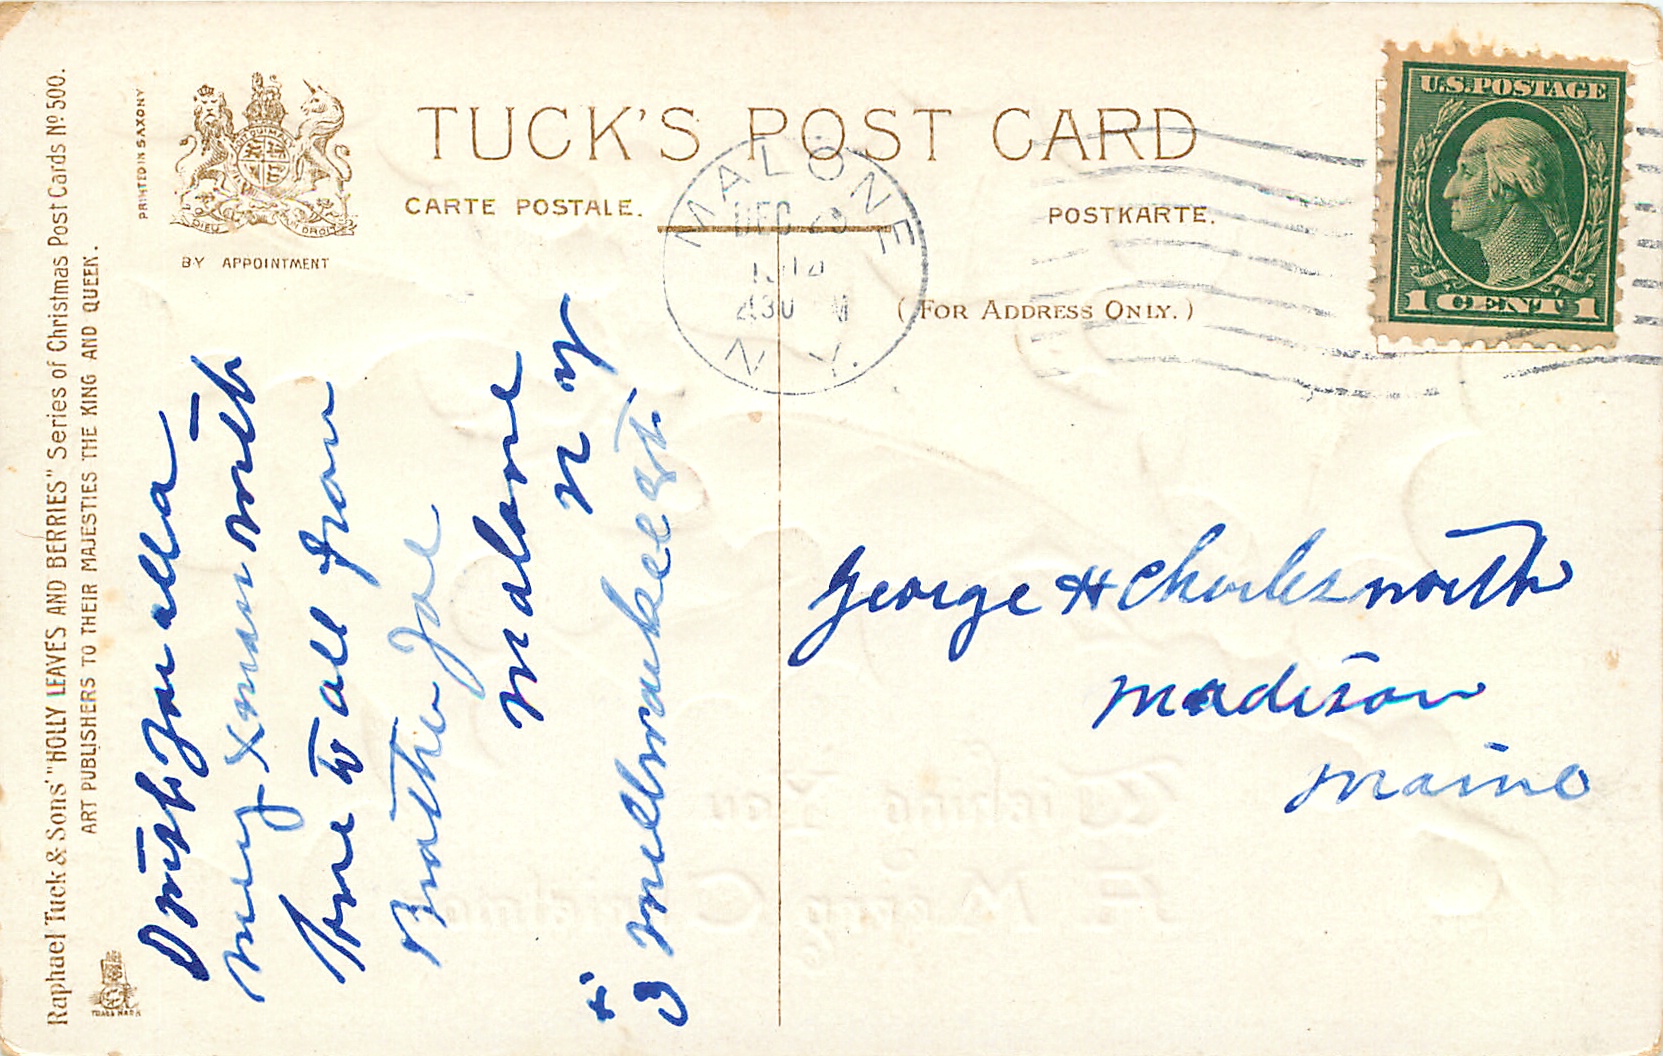 Raphael Tuck & Sons' "HOLLY LEAVES AND BERRIES" Series of Christmas Post Cards Nº 500.
ART PUBLISHERS TO THEIR MAJESTIES THE KING AND QUEEN.
PRINTED IN SAXONY
DIEU DROIT
BY APPOINTMENT
TRADE MARK
TUCK'S POST CARD
CARTE POSTALE.
POSTKARTE.
(FOR ADDRESS ONLY.)
MALONE
DEC
430 M
N.Y.
U.S. POSTAGE
1 CENT 1
I wish you all a
merry xmas with
love to all from
Brother Joe
malone
n y
St.
George H Charlesworth
madison
maine